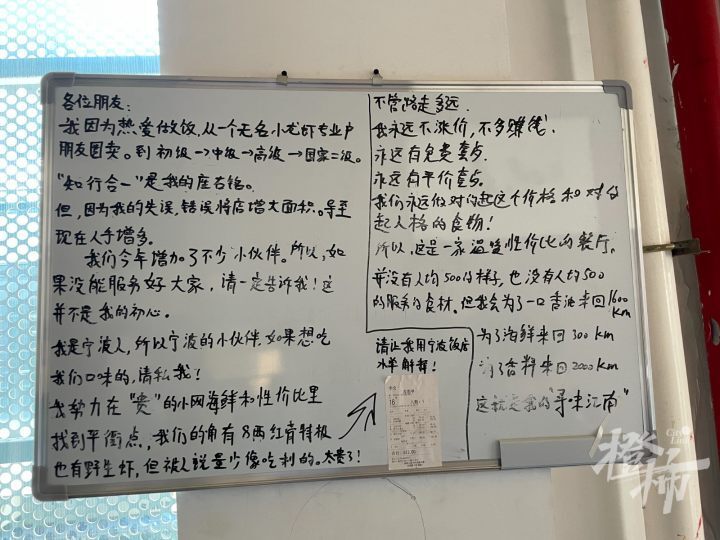 各位朋友:
我因为热爱做饭,从一个无名小龙虾专业户
朋友圈卖。到初级→中级→高级→国家二级。
"知行合一"是我的座右铭。
但,因为我的失误,错误将店增大面积。导至
现在人手增多。
我们今年增加了不少小伙伴。所以,如
果没能服务好大家,请一定告诉我!这
并不是我的初心。
我是宁波人,所以宁波的小伙伴,如果想吃
我们口味的,请私我!
我努力在"贵"的小网海鲜和性价比里
找到平衡点,我们的角有8两红膏特极
也有野生虾,但被人说量少像吃利的。太贵了!
不管路走多远
我永远不涨价,不多赚钱
永远有免费
永远有平价
我们永远做对的起这个价格和对的
起人格的食物!
所以,这是一家温暖性价比的餐厅。
并没有人均500的样子,也没有人均500
的服务与食材。但我会为了一口香油来回1600
km
为了海鲜来回300km
为了香料来回2000km
这就是我的"寻味江南"
请让我用宁波饭店
水单解释!
橙柿
City
Line